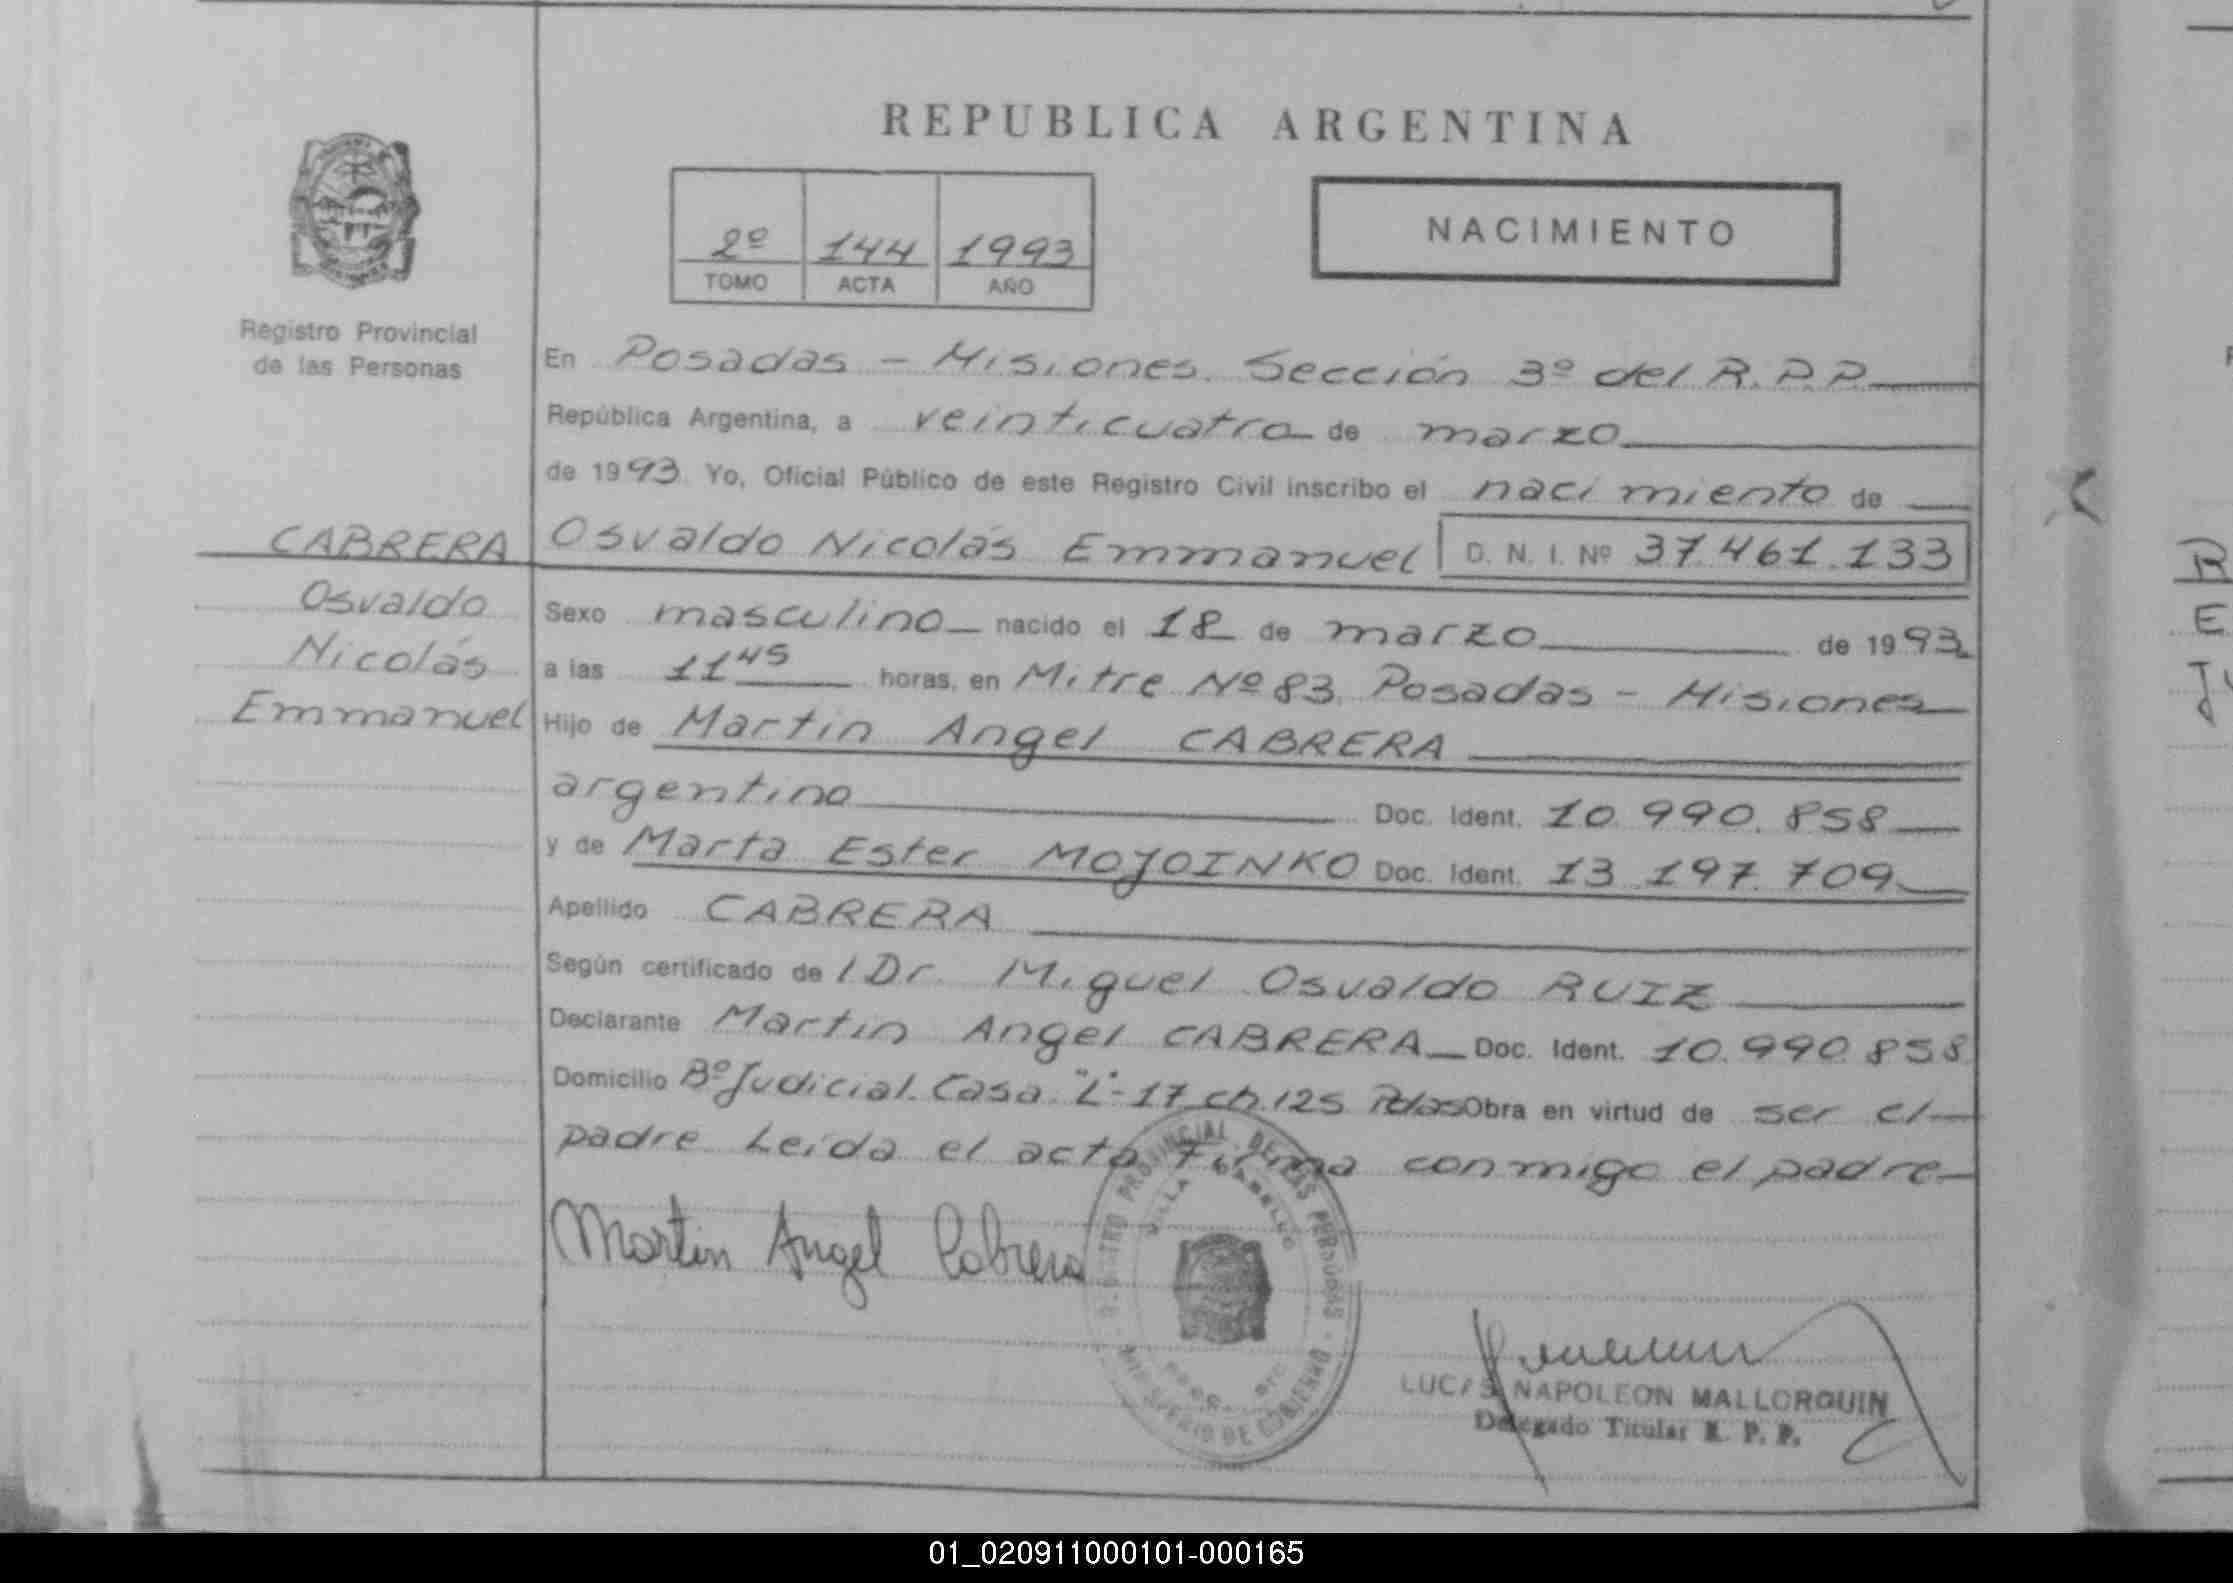 REPUBLICA ARGENTINA
2º 144 1993
TOMO ACTA AÑO
NACIMIENTO
Registro Provincial
de las Personas
En Posadas - Misiones. Sección 3º del R.P.P.
República Argentina, a veinticuatro de marzo
de 1993. Yo, Oficial Público de este Registro Civil inscribo el nacimiento de
CABRERA
Osvaldo
Nicolás
Emmanuel
Osvaldo Nicolás Emmanuel D. N. I. Nº 37.461.133
Sexo masculino nacido el 18 de marzo de 1993
a las 11 45 horas, en Mitre Nº 83. Posadas - Misiones
Hijo de Martin Angel CABRERA
argentino Doc. Ident. 10.990.858
y de Marta Ester MOJOINKO Doc. Ident. 13.197.709
Apellido CABRERA
Según certificado de l Dr. Miguel Osvaldo RUIZ
Declarante Martin Angel CABRERA Doc. Ident. 10.990.858
Domicilio Bº Judicial. Casa "L"-17 ch.125 Pdas Obra en virtud de ser el
padre Leída el acta Firma conmigo el padre
Martin Angel Cabrera
PROVINCIAL DE LAS PERSONAS
VILLA CABELLO
MINISTERIO DE GOBIERNO
LUCAS NAPOLEON MALLORQUIN
Delegado Titular R. P. P.
R
E
01_020911000101-000165